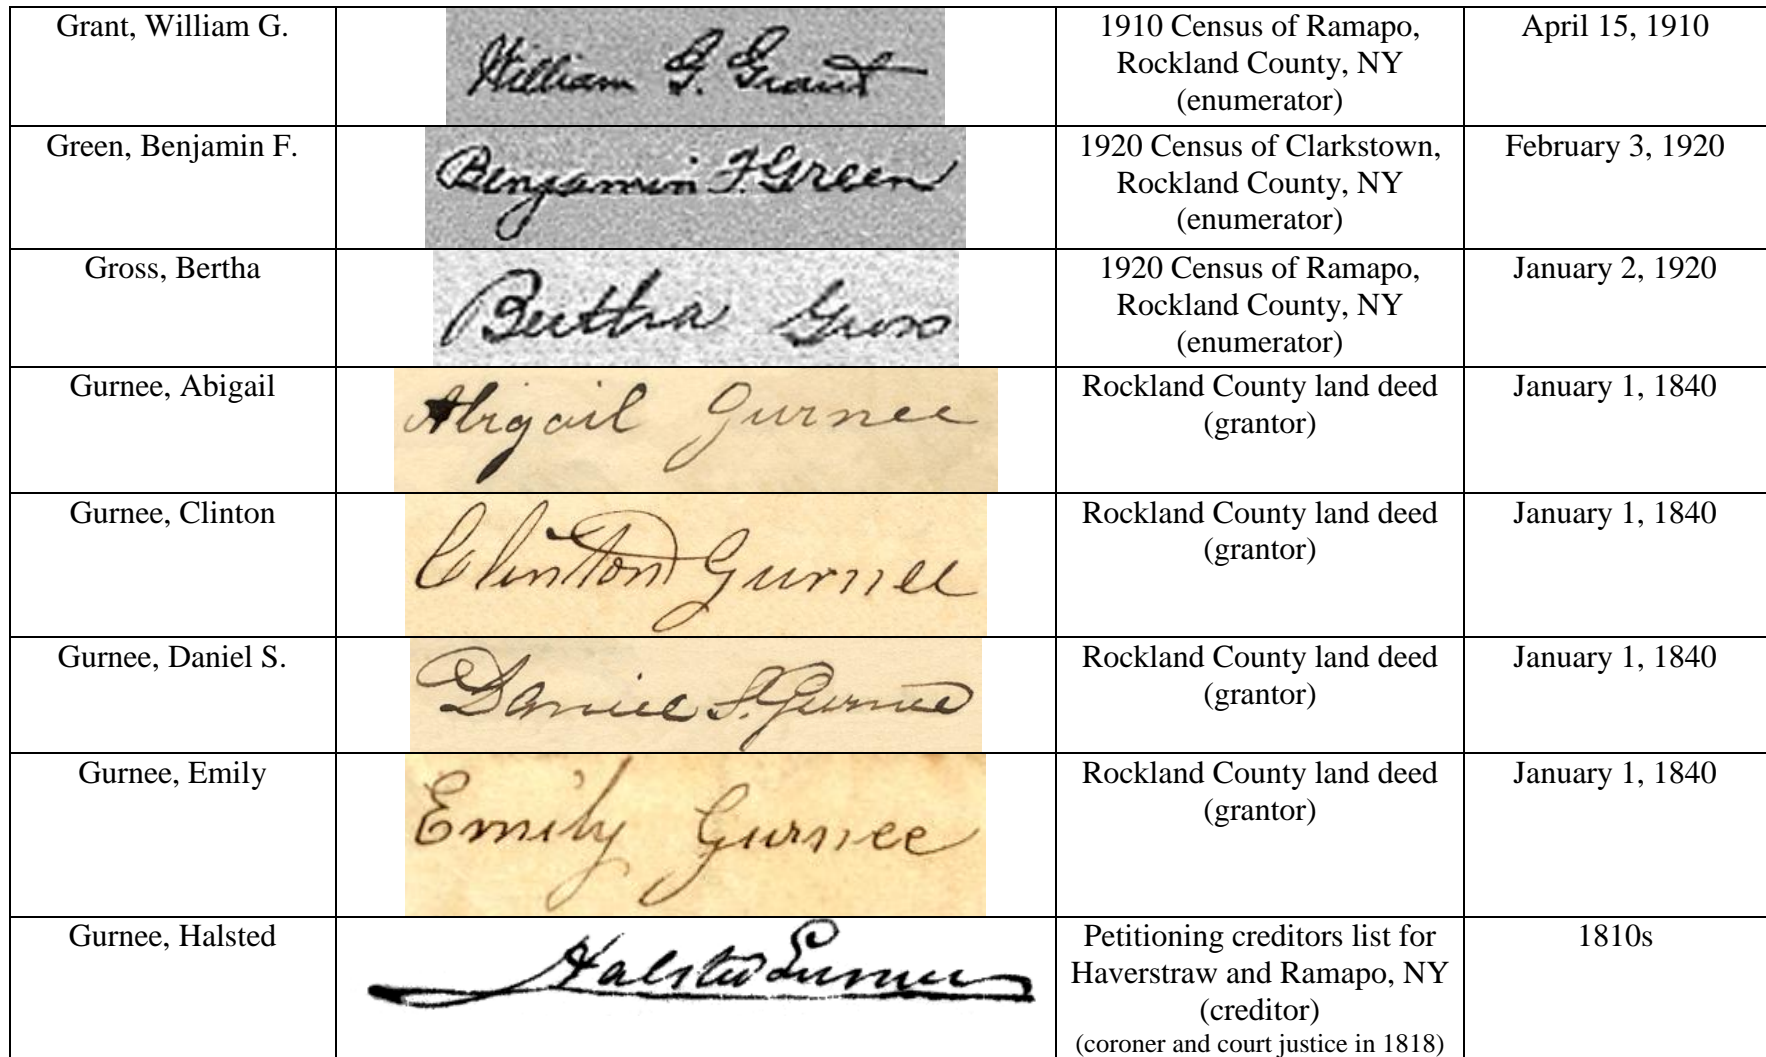 Grant, William G.
William G. Grant
1910 Census of Ramapo,
Rockland County, NY
(enumerator)
April 15, 1910
Green, Benjamin F.
Benjamin F. Green
1920 Census of Clarkstown,
Rockland County, NY
(enumerator)
February 3, 1920
Gross, Bertha
Bertha Gross
1920 Census of Ramapo,
Rockland County, NY
(enumerator)
January 2, 1920
Gurnee, Abigail
Abigail Gurnee
Rockland County land deed
(grantor)
January 1, 1840
Gurnee, Clinton
Clinton Gurnee
Rockland County land deed
(grantor)
January 1, 1840
Gurnee, Daniel S.
Daniel S. Gurnee
Rockland County land deed
(grantor)
January 1, 1840
Gurnee, Emily
Emily Gurnee
Rockland County land deed
(grantor)
January 1, 1840
Gurnee, Halsted
Halsted Gurnee
Petitioning creditors list for
Haverstraw and Ramapo, NY
(creditor)
(coroner and court justice in 1818)
1810s